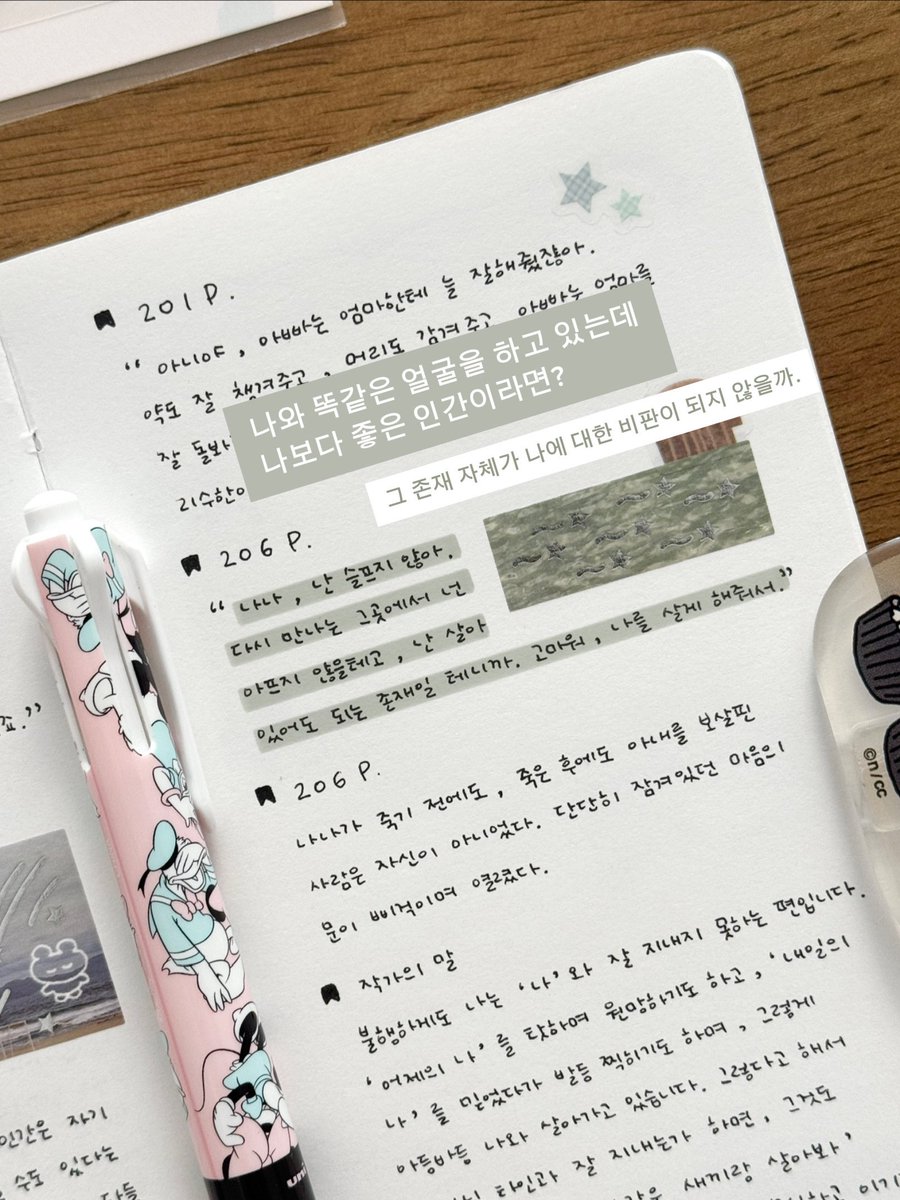 201 P.
“ 아니야, 아빠는 엄마한테 늘 잘해줬잖아.
약도 잘 챙겨주고, 머리도 감겨주고, 아빠는 엄마를
잘 돌봐
리수한이
나와 똑같은 얼굴을 하고 있는데
나보다 좋은 인간이라면?
그 존재 자체가 나에 대한 비판이 되지 않을까.
206 P.
“ 나나, 난 슬프지 않아.
다시 만나는 그곳에서 넌
아프지 않을테고, 난 살아
있어도 되는 존재일 테니까. 고마워, 나를 살게 해줘서.”
206 P.
나나가 죽기 전에도, 죽은 후에도 아내를 보살핀
사람은 자신이 아니었다. 단단히 잠겨있던 마음의
문이 삐걱이며 열렸다.
작가의 말
불행하게도 나는 ‘나’와 잘 지내지 못하는 편입니다.
‘어제의 나’를 탓하며 원망하기도 하고, ‘내일의
나’를 믿었다가 발등 찍히기도 하며, 그렇게
아등바등 나와 살아가고 있습니다. 그렇다고 해서
타인과 잘 지내는가 하면, 그것도
같은 새끼랑 살아봐’
죠.”
인간은 자기
수도 있다는
©n/cc
uni